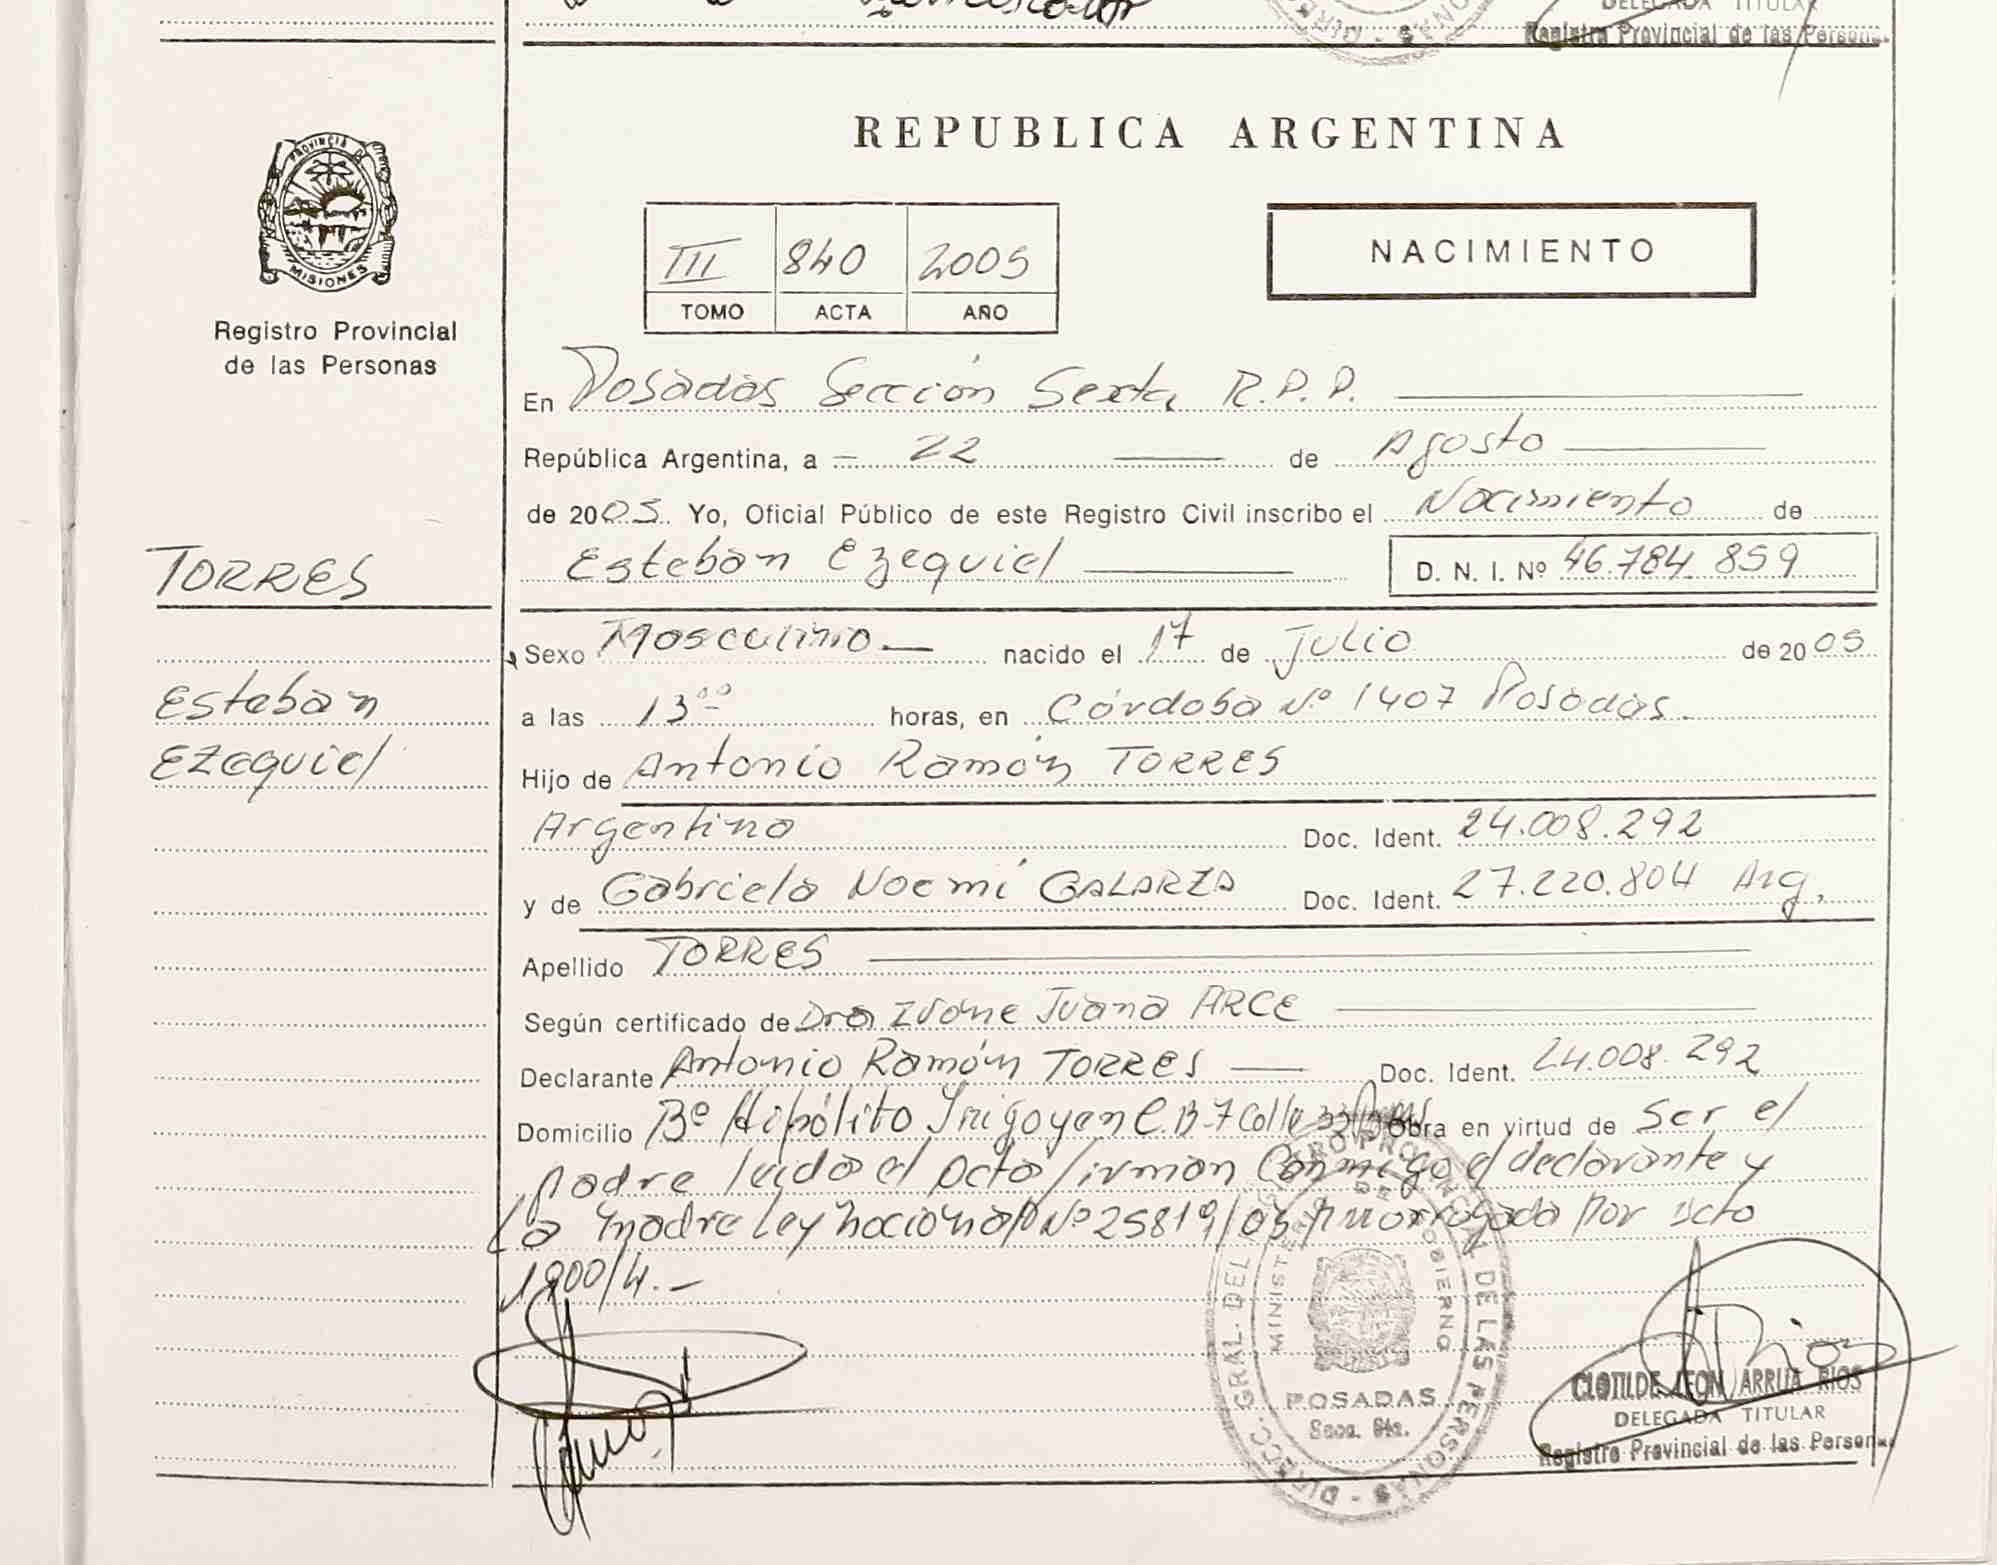 DELEGADA TITULAR
Registro Provincial de las Person
PROVINCIA DE
MISIONES
Registro Provincial
de las Personas
REPUBLICA ARGENTINA
III 840 2005
TOMO ACTA AÑO
NACIMIENTO
En Posadas Sección Sexta R.P.P.
República Argentina, a 22 de Agosto
de 2005 Yo, Oficial Público de este Registro Civil inscribo el Nacimiento de
Esteban Ezequiel D. N. I. Nº 46.784.859
TORRES
Esteban
Ezequiel
Sexo Masculino nacido el 17 de Julio de 2005
a las 13⁰⁰ horas, en Córdoba Nº 1407 Posadas.
Hijo de Antonio Ramón TORRES
Argentino Doc. Ident. 24.008.292
y de Gabriela Noemí GALARZA Doc. Ident. 27.220.804 Arg.
Apellido TORRES
Según certificado de Dra Ivone Juana ARCE
Declarante Antonio Ramón TORRES Doc. Ident. 24.008.292
Domicilio Bº Hipólito Irigoyen C B-7 Calle 33 Obra en virtud de Ser el
padre leído el acta firman Conmigo el declarante y
La madre Ley nacional Nº 25819/03 prorrogada por Dcto
1900/4.-
DIRECC. GRAL. DEL REGISTRO PROVINCIAL DE LAS PERSONAS
MINISTERIO DE GOBIERNO
POSADAS
Secc. 6ta.
CLOTILDE LEON ARRUA RIOS
DELEGADA TITULAR
Registro Provincial de las Person